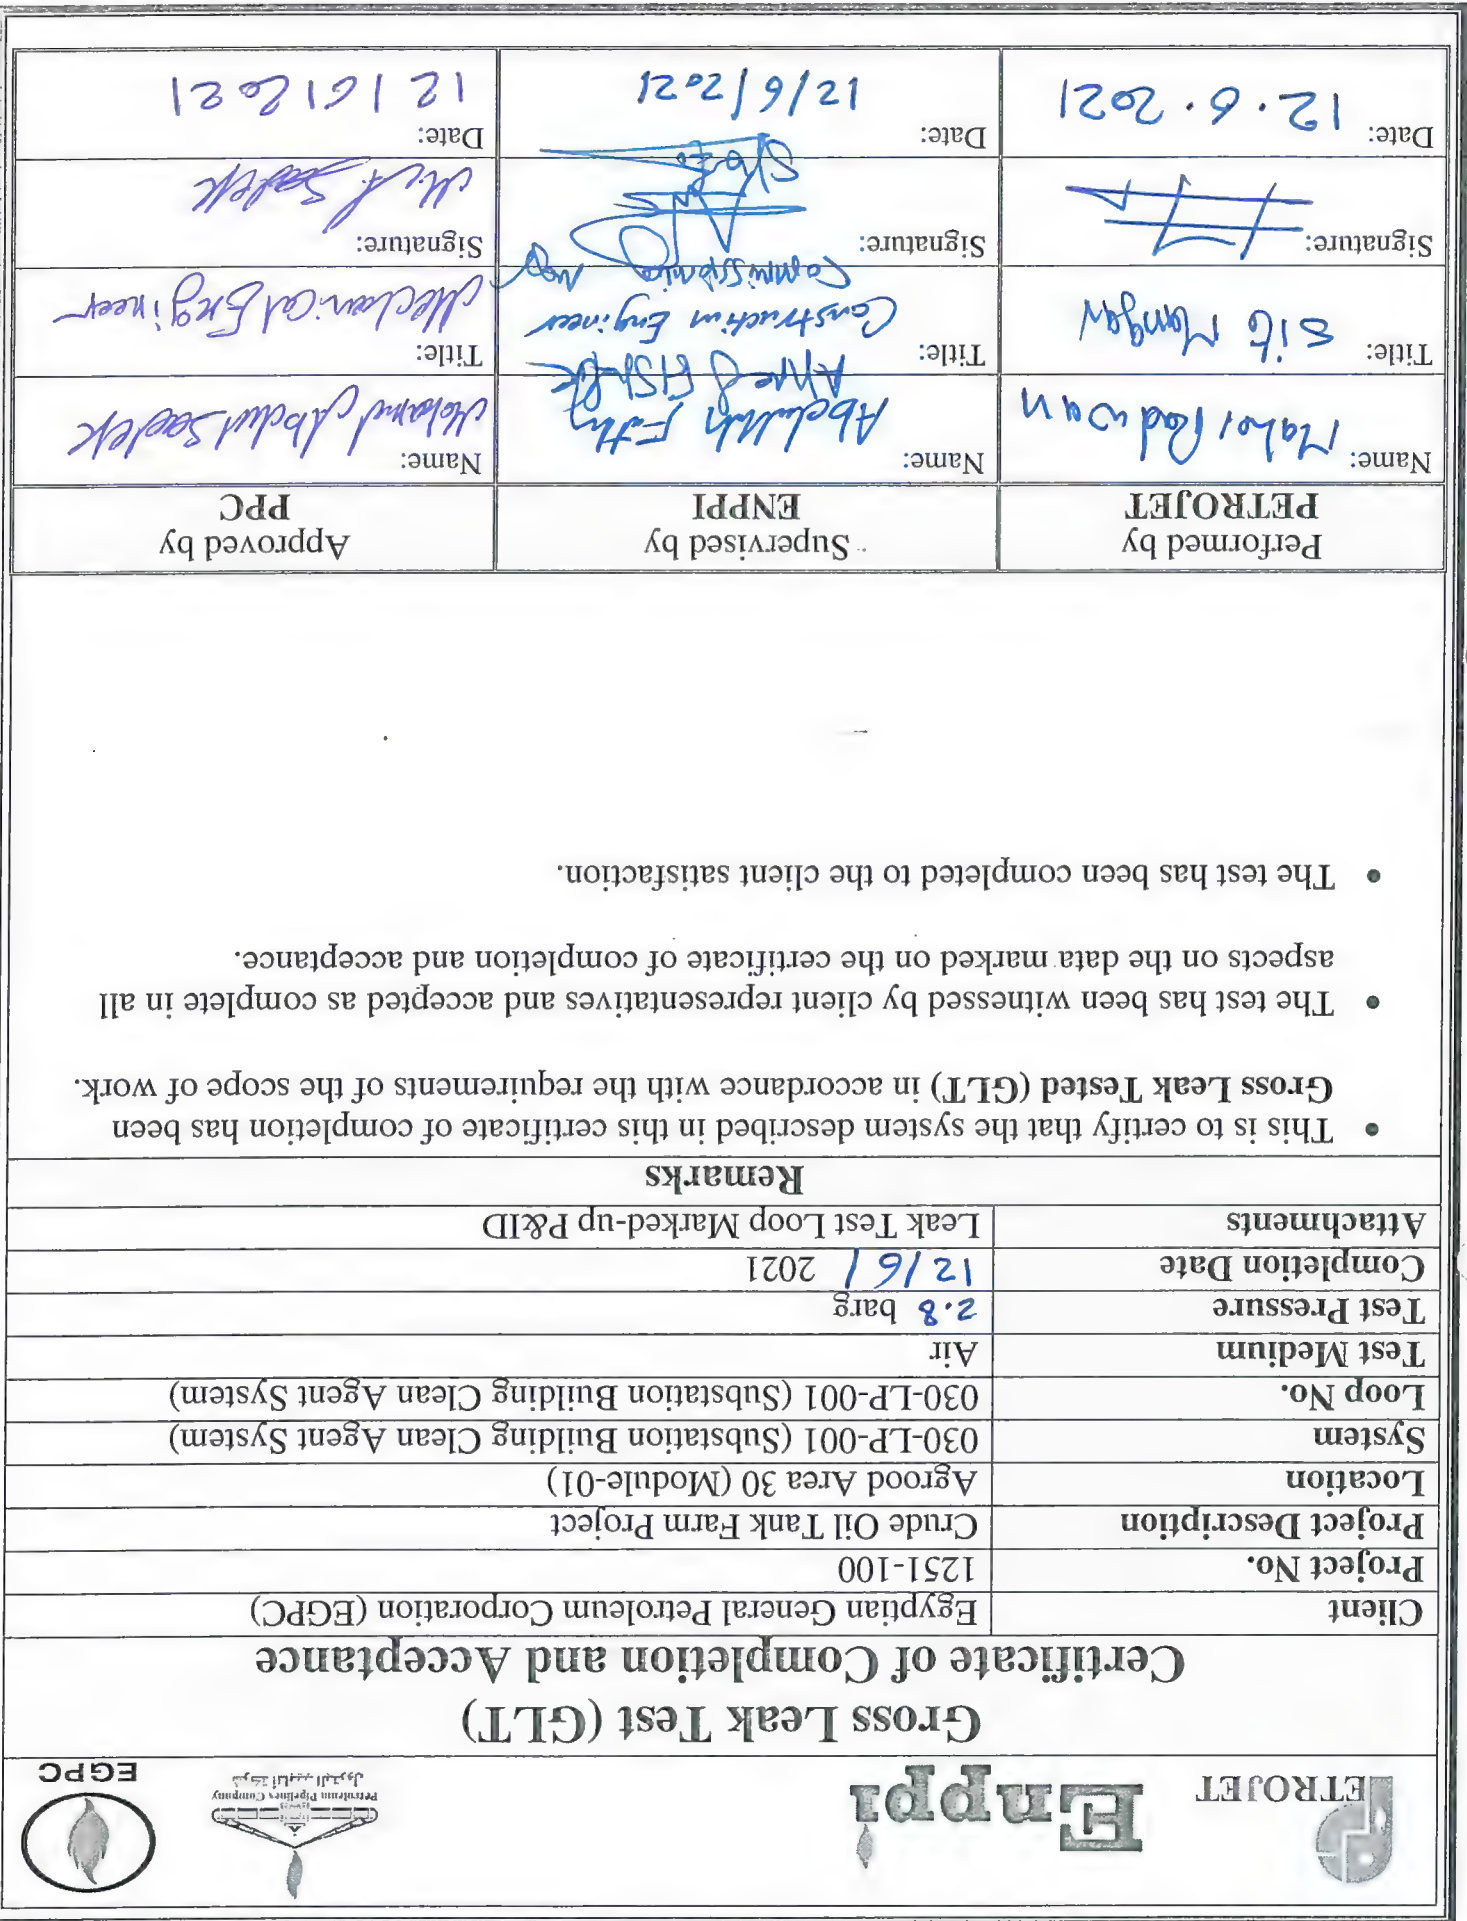 PETROJET
Enppi
Petroleum Pipelines Company
شركة أنابيب البترول
EGPC
Gross Leak Test (GLT)
Certificate of Completion and Acceptance
Client Egyptian General Petroleum Corporation (EGPC)
Project No. 1251-100
Project Description Crude Oil Tank Farm Project
Location Agrood Area 30 (Module-01)
System 030-LP-001 (Substation Building Clean Agent System)
Loop No. 030-LP-001 (Substation Building Clean Agent System)
Test Medium Air
Test Pressure 2.8 barg
Completion Date 12/6/ 2021
Attachments Leak Test Loop Marked-up P&ID
Remarks
• This is to certify that the system described in this certificate of completion has been
Gross Leak Tested (GLT) in accordance with the requirements of the scope of work.
• The test has been witnessed by client representatives and accepted as complete in all
aspects on the data marked on the certificate of completion and acceptance.
• The test has been completed to the client satisfaction.
Performed by
PETROJET
Supervised by
ENPPI
Approved by
PPC
Name: Maher Radwan
Name: Abdullah Fathy
Ahmed
Name: Mohamed Abdul Sadek
Title: Site Manger
Title: Construction Engineer
Commissioning
Title: Mechanical Engineer
Signature:
Signature:
Signature: Sadek
Date: 12.6.2021
Date: 12/6/2021
Date: 12/6/2021